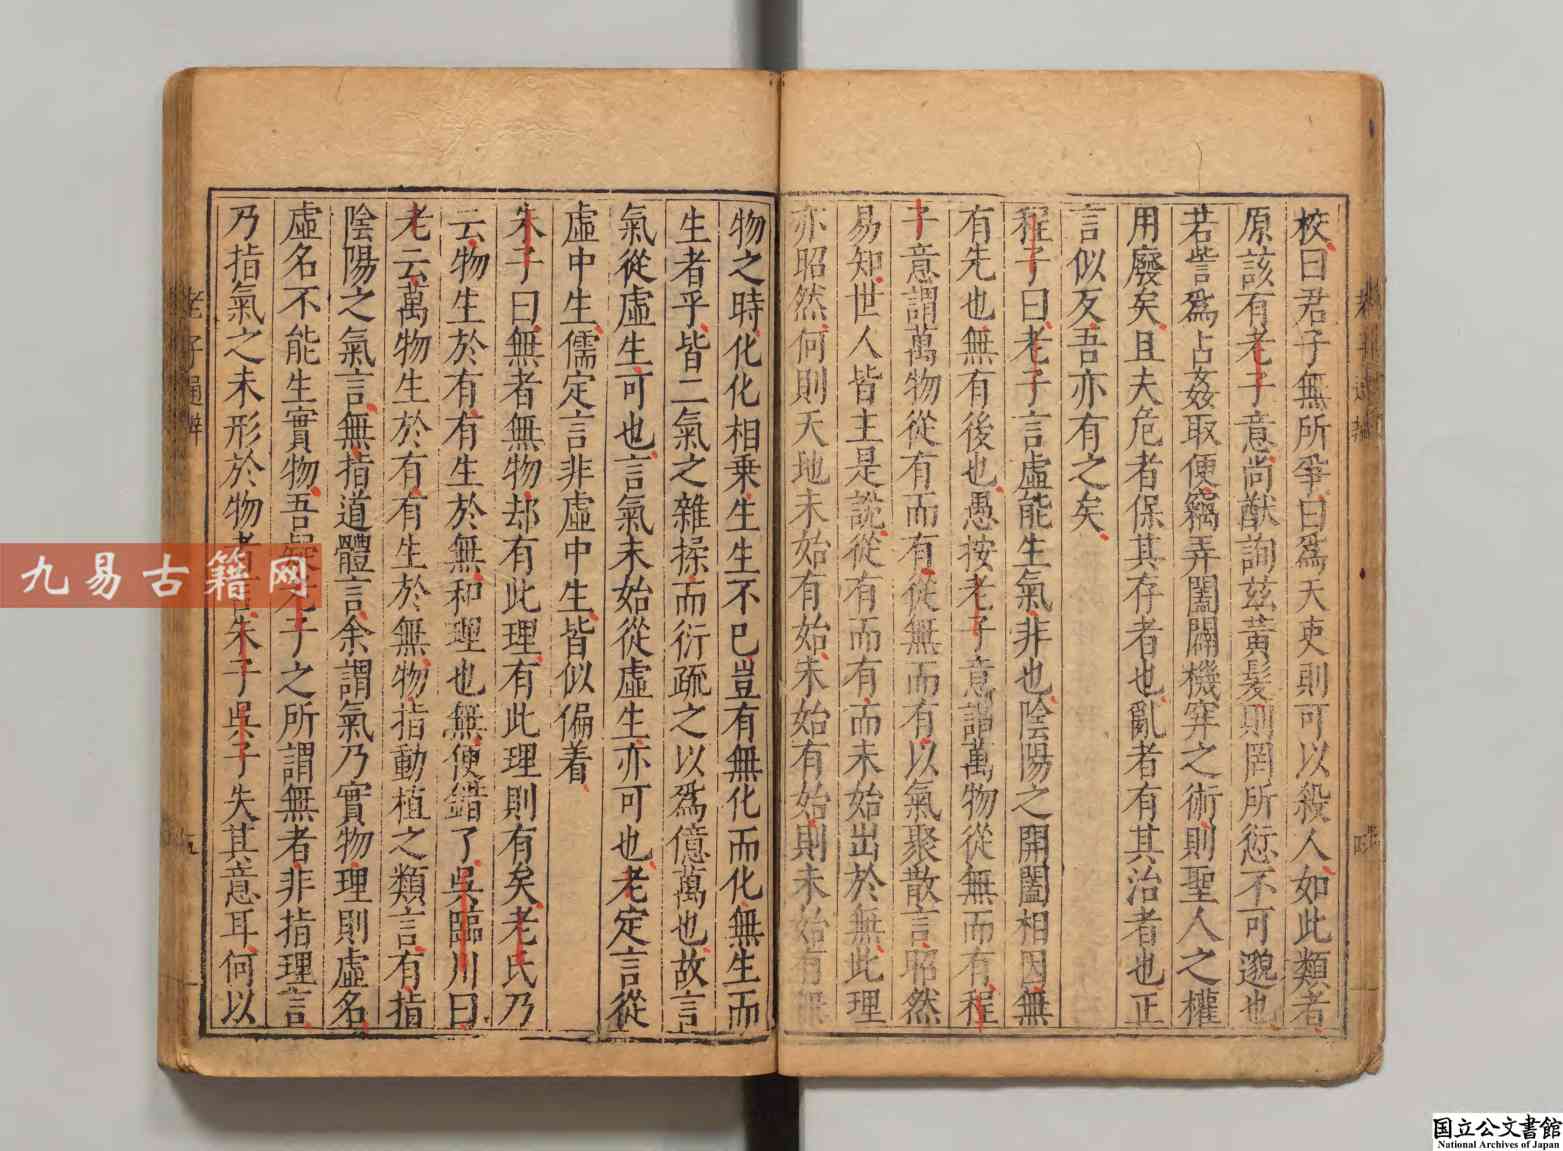 校曰君子無所爭曰爲天吏則可以殺人如此類者
原該有老子意尚猷詢茲黃髮則罔所愆不可邈也
若訾爲占姦取便竊弄闔闢機穽之術則聖人之權
用廢矣且夫危者保其存者也亂者有其治者也正
言似反吾亦有之矣
程子曰老子言虛能生氣非也陰陽之開闔相因無
有先也無有後也愚按老子意謂萬物從無而有程
子意謂萬物從有而有從無而有以氣聚散言昭然
易知世人皆主是說從有而有而未始出於無此理
亦昭然何則天地未始有始未始有始則未始有無
物之時化化相乗生生不已豈有無化而化無生而
生者乎皆二氣之雜揉而衍疏之以爲億萬也故言
氣從虛生可也言氣未始從虛生亦可也老定言從
虛中生儒定言非虛中生皆似偏着
朱子曰無者無物却有此理有此理則有矣老氏乃
云物生於有有生於無和理也無便錯了吳臨川曰
老云萬物生於有有生於無物指動植之類言有指
陰陽之氣言無指道體言余謂氣乃實物理則虛名
虛名不能生實物吾疑老子之所謂無者非指理言
乃指氣之未形於物者言朱子吳子失其意耳何以
老子通辨
五
四
九易古籍网
国立公文書館
National Archives of Japan